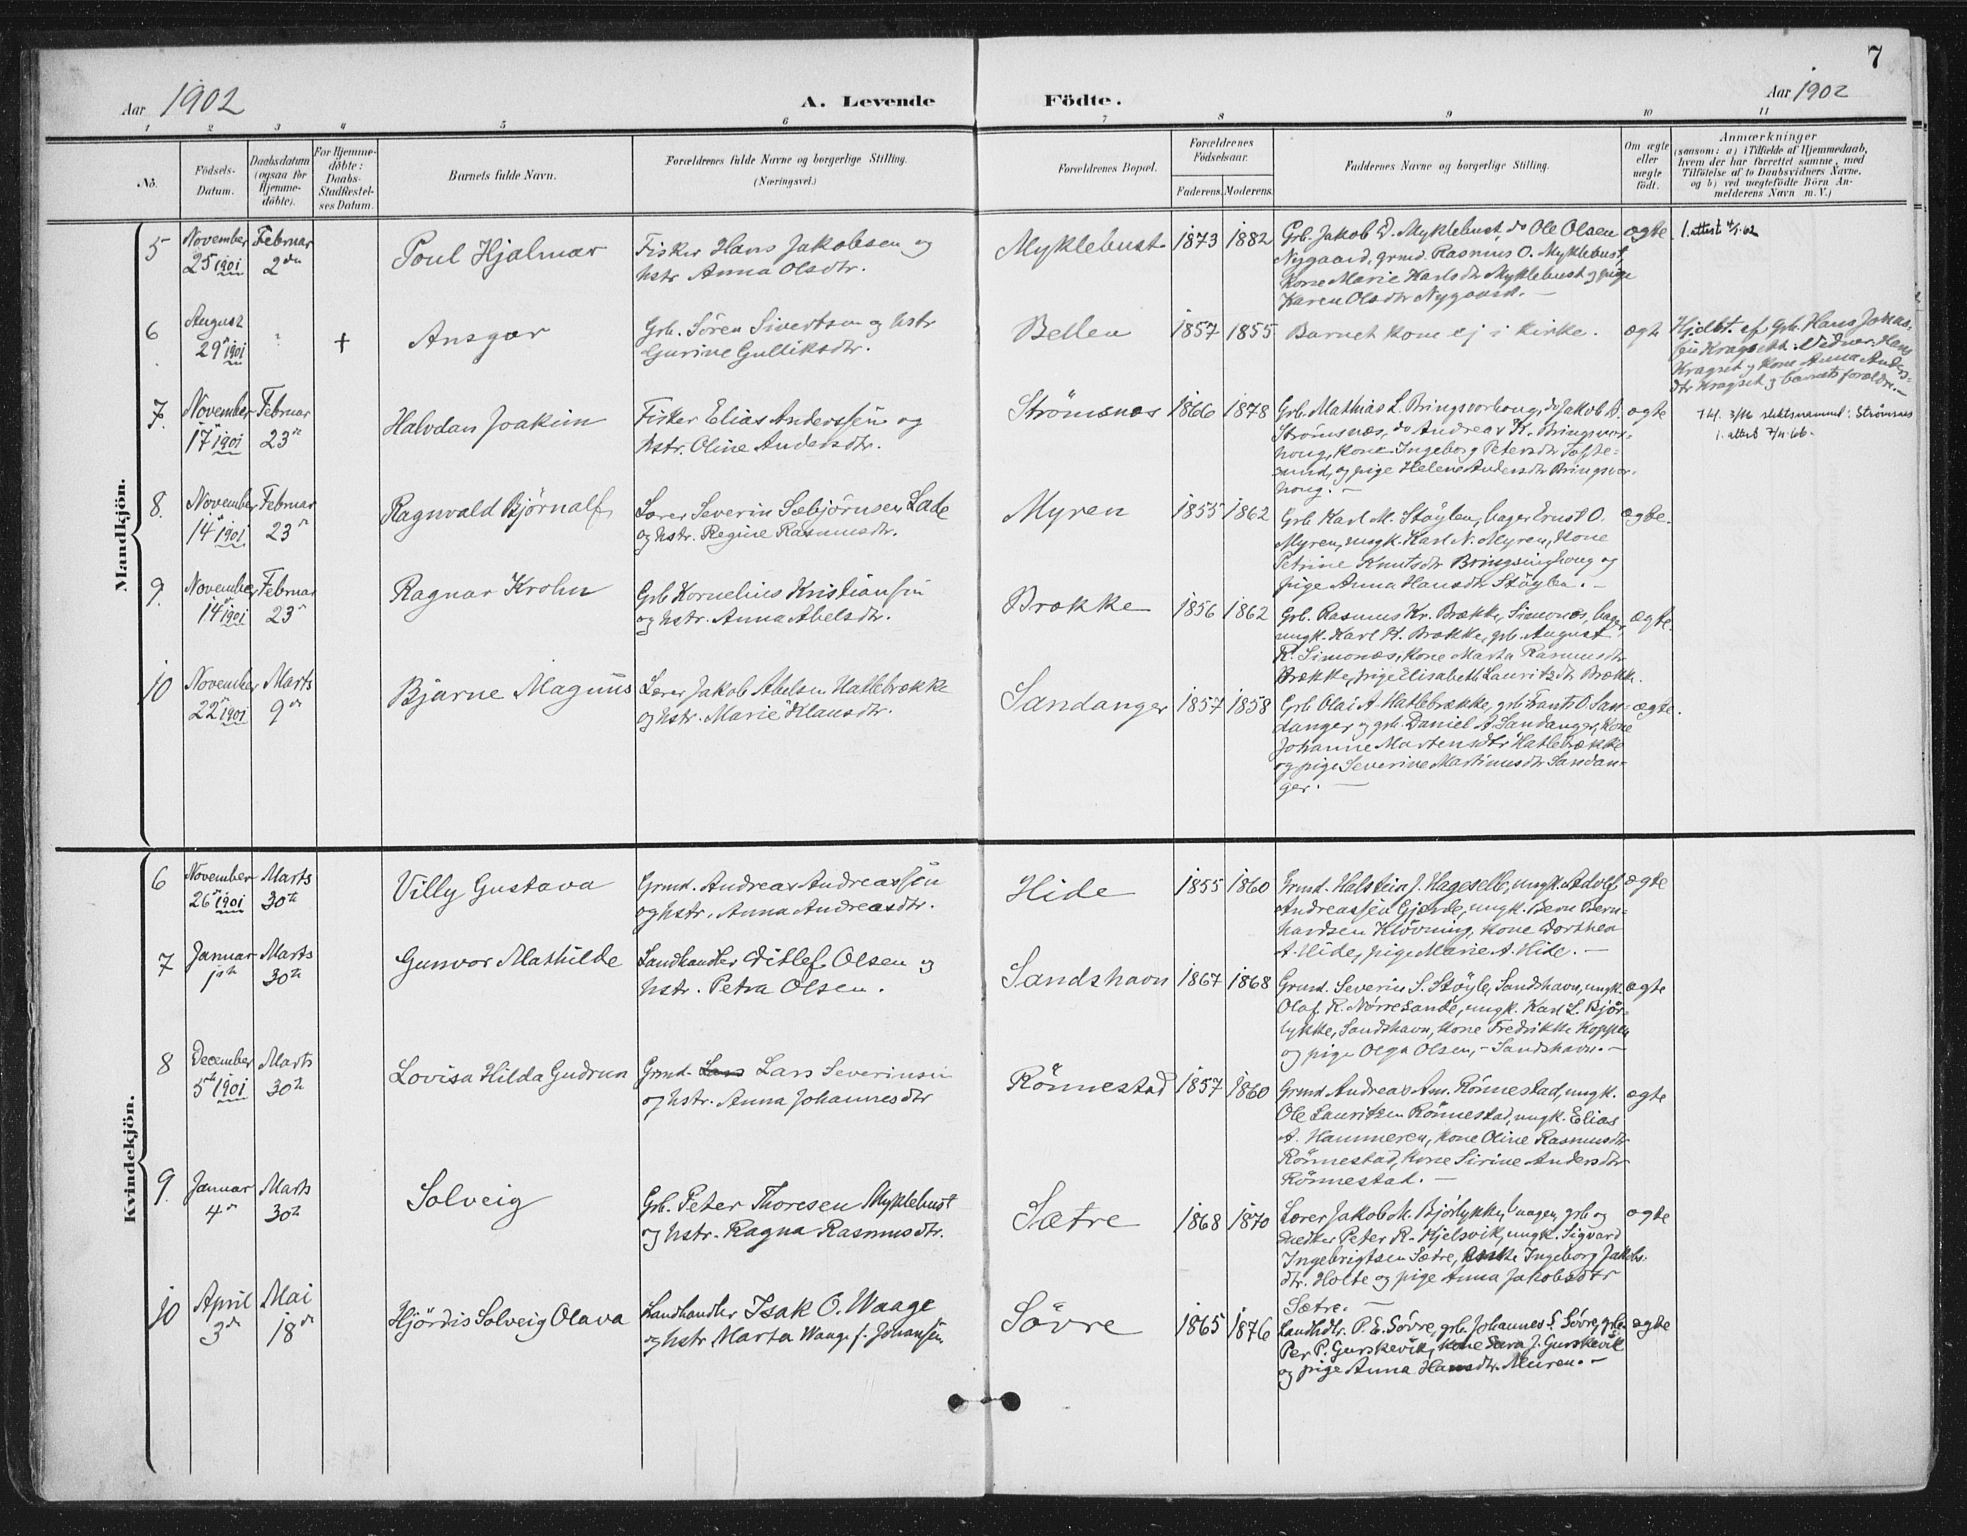 7
Aar 1902 A. Levende Födte. Aar 1902
1 2 3 4 5 6 7 8 9 10 11
No.
Födsels-Datum.
Daabsdatum (ogsaa for Hjemme-döbte).
For Hjemme-döbte: Daabs-Stadfæstel-ses Datum.
Barnets fulde Navn.
Forældrenes fulde Navne og borgerlige Stilling. (Næringsvei.)
Forældrenes Bopæl.
Forældrenes Födselsaar.
Faderens. Moderens.
Faddernes Navne og borgerlige Stilling.
Om ægte eller uægte födt.
Anmærkninger
(saasom: a) i Tilfælde af Hjemmedaab,
hvem der har forrettet samme, med
Tilföielse af to Daabsvidners Navne,
og b) ved uægtefödte Börn An-
melderens Navn m. V.)
Mandkjön.
5 November 25 1901 Februar 2den
Poul Hjalmar
Fisker Hans Jakobsen og
hstr. Anna Olsdtr.
Myklebust 1873 1882
Grb. Jakob D. Myklebust, do Ole Olsen
Nygaard, grmd. Rasmus O. Myklebust,
kone Marie Karlsdtr Myklebust og pige
Karen Olsdtr Nygaard. —
ægte
1. attest
6 August 29 1901 †
Ansgar
Grb. Sören Sivertsen og hstr
Gurine Gulliksdtr.
Bellen 1857 1855
Barnet kom ej i kirke.
ægte
Hjdbt. af Grb. Hans Jakob-
Kragset: Vidner: Hans
Kragset og kone Anna Anders-
dtr Kragset og barnets forældre. —
7. November 17 1901 Februar 23
Halvdan Joakim
Fisker Elias Anderssen og
hstr. Oline Andersdtr.
Strömsnæs 1866 1878
Grb. Mathias L. Bringsvorhoug, do Jakob A.
Strömsnæs, do Andreas K. Bringsvor-
houg, kone Ingeborg Petersdtr Tofte-
sund, og pige Helene Andersdtr Bringsvor-
houg. —
ægte
slektsnavnet: Strømsnes
1. attest
8. November 14 1901 Februar 23
Ragnvald Bjørnalf
Lærer Severin Sæbjörnsen Lade
og hstr. Regine Rasmusdtr.
Myren 1855 1862
Grb. Karl M. Stöylen, bager Ernst O.
Myren, ungk. Karl N. Myren, kone
Petrine Knutsdtr Bringsinghoug og
pige Anna Hansdtr Stöylen. —
ægte.
9. November 14 1901 Februar 23
Ragnar Krohn
Grb Kornelius Kristiansen
og hstr. Anna Abelsdtr.
Brække 1856 1862
Grb. Rasmus Kr. Brække, Simonæs, bager,
ungk. Karl H. Brække, grb. August
R. Simonæs, kone Marta Rasmusdtr
Brække, pige Elisabeth Lauritsdtr Brække.
ægte.
10 November 22 1901 Marts 9de
Bjarne Magnus
Lærer Jakob Abelsen Hatlebrække
og hstr. Marie Klausdtr.
Sandanger 1857 1858
Grb Olai A. Hatlebrække, grb. Frants O. San-
danger og grb. Daniel A. Sandanger, kone
Johanne Martensdtr Hatlebrække
og pige Severine Martinusdtr Sandan-
ger. —
ægte.
Kvindekjön.
6 November 26 1901 Marts 30te
Villy Gustava
Grmd. Andreas Andreassen
og hstr. Anna Andreasdtr.
Hide 1855 1860
Grmd. Halstein J. Hageselb, ungk. Adolf
Andreassen Gjerde, ungk. Bern Bern-
hardsen Klövning, kone Dorthea
A. Hide, pige Marie A. Hide. —
ægte
7 Januar 1ste Marts 30te
Gunvor Mathilde
Landhandler Ditlef Olsen og
hstr. Petra Olsen.
Sandshavn 1867 1868
Grmd. Severin S. Stöyle, Sandshavn, ungk.
Olaf R. Nörresande, ungk. Karl L. Bjør-
lykke, Sandshavn, kone Fredrikke Koppen
og pige Olga Olsen, - Sandshavn. —
ægte
8 December 5te 1901 Marts 30te
Lovisa Hilda Gudrun
Grmd. Lars Lars Severinsen
og hstr. Anna Johannesdtr
Rönnestad 1857 1860
Grmd Andreas Am. Rönnestad, ungk.
Ole Lauritzen Rönnestad, ungk. Elias
A. Hammeren, kone Oline Rasmusdtr
Rönnestad, kone Sirine Andersdtr
Rönnestad. —
ægte
9. Januar 4de Marts 30te
Solveig
Grb. Peter Thoresen Myklebust
og hstr. Ragna Rasmusdtr.
Sætre 1868 1870
Lærer Jakob M. Bjørlykke, Vaagen, grb og
snedker Peter R. Hjelsvik, ungk. Sigvard
Ingebrigtsen Sætre, Ingeborg Jakobs-
dtr. Holte og pige Anna Jakobsdtr
Sætre. —
ægte
10 April 3de Mai 18de
Hjördis Solveig Olava
Landhandler Isak O. Waage
og hstr. Marta Waage f. Johansen
Sövre 1865 1876
Landhdlr. P. E. Sövre, grb. Johannes S. Sövre, grb.
Per P. Gurskevik, kone Sara J. Gurskevik
og pige Anna Hansdtr. Muren. —
ægte